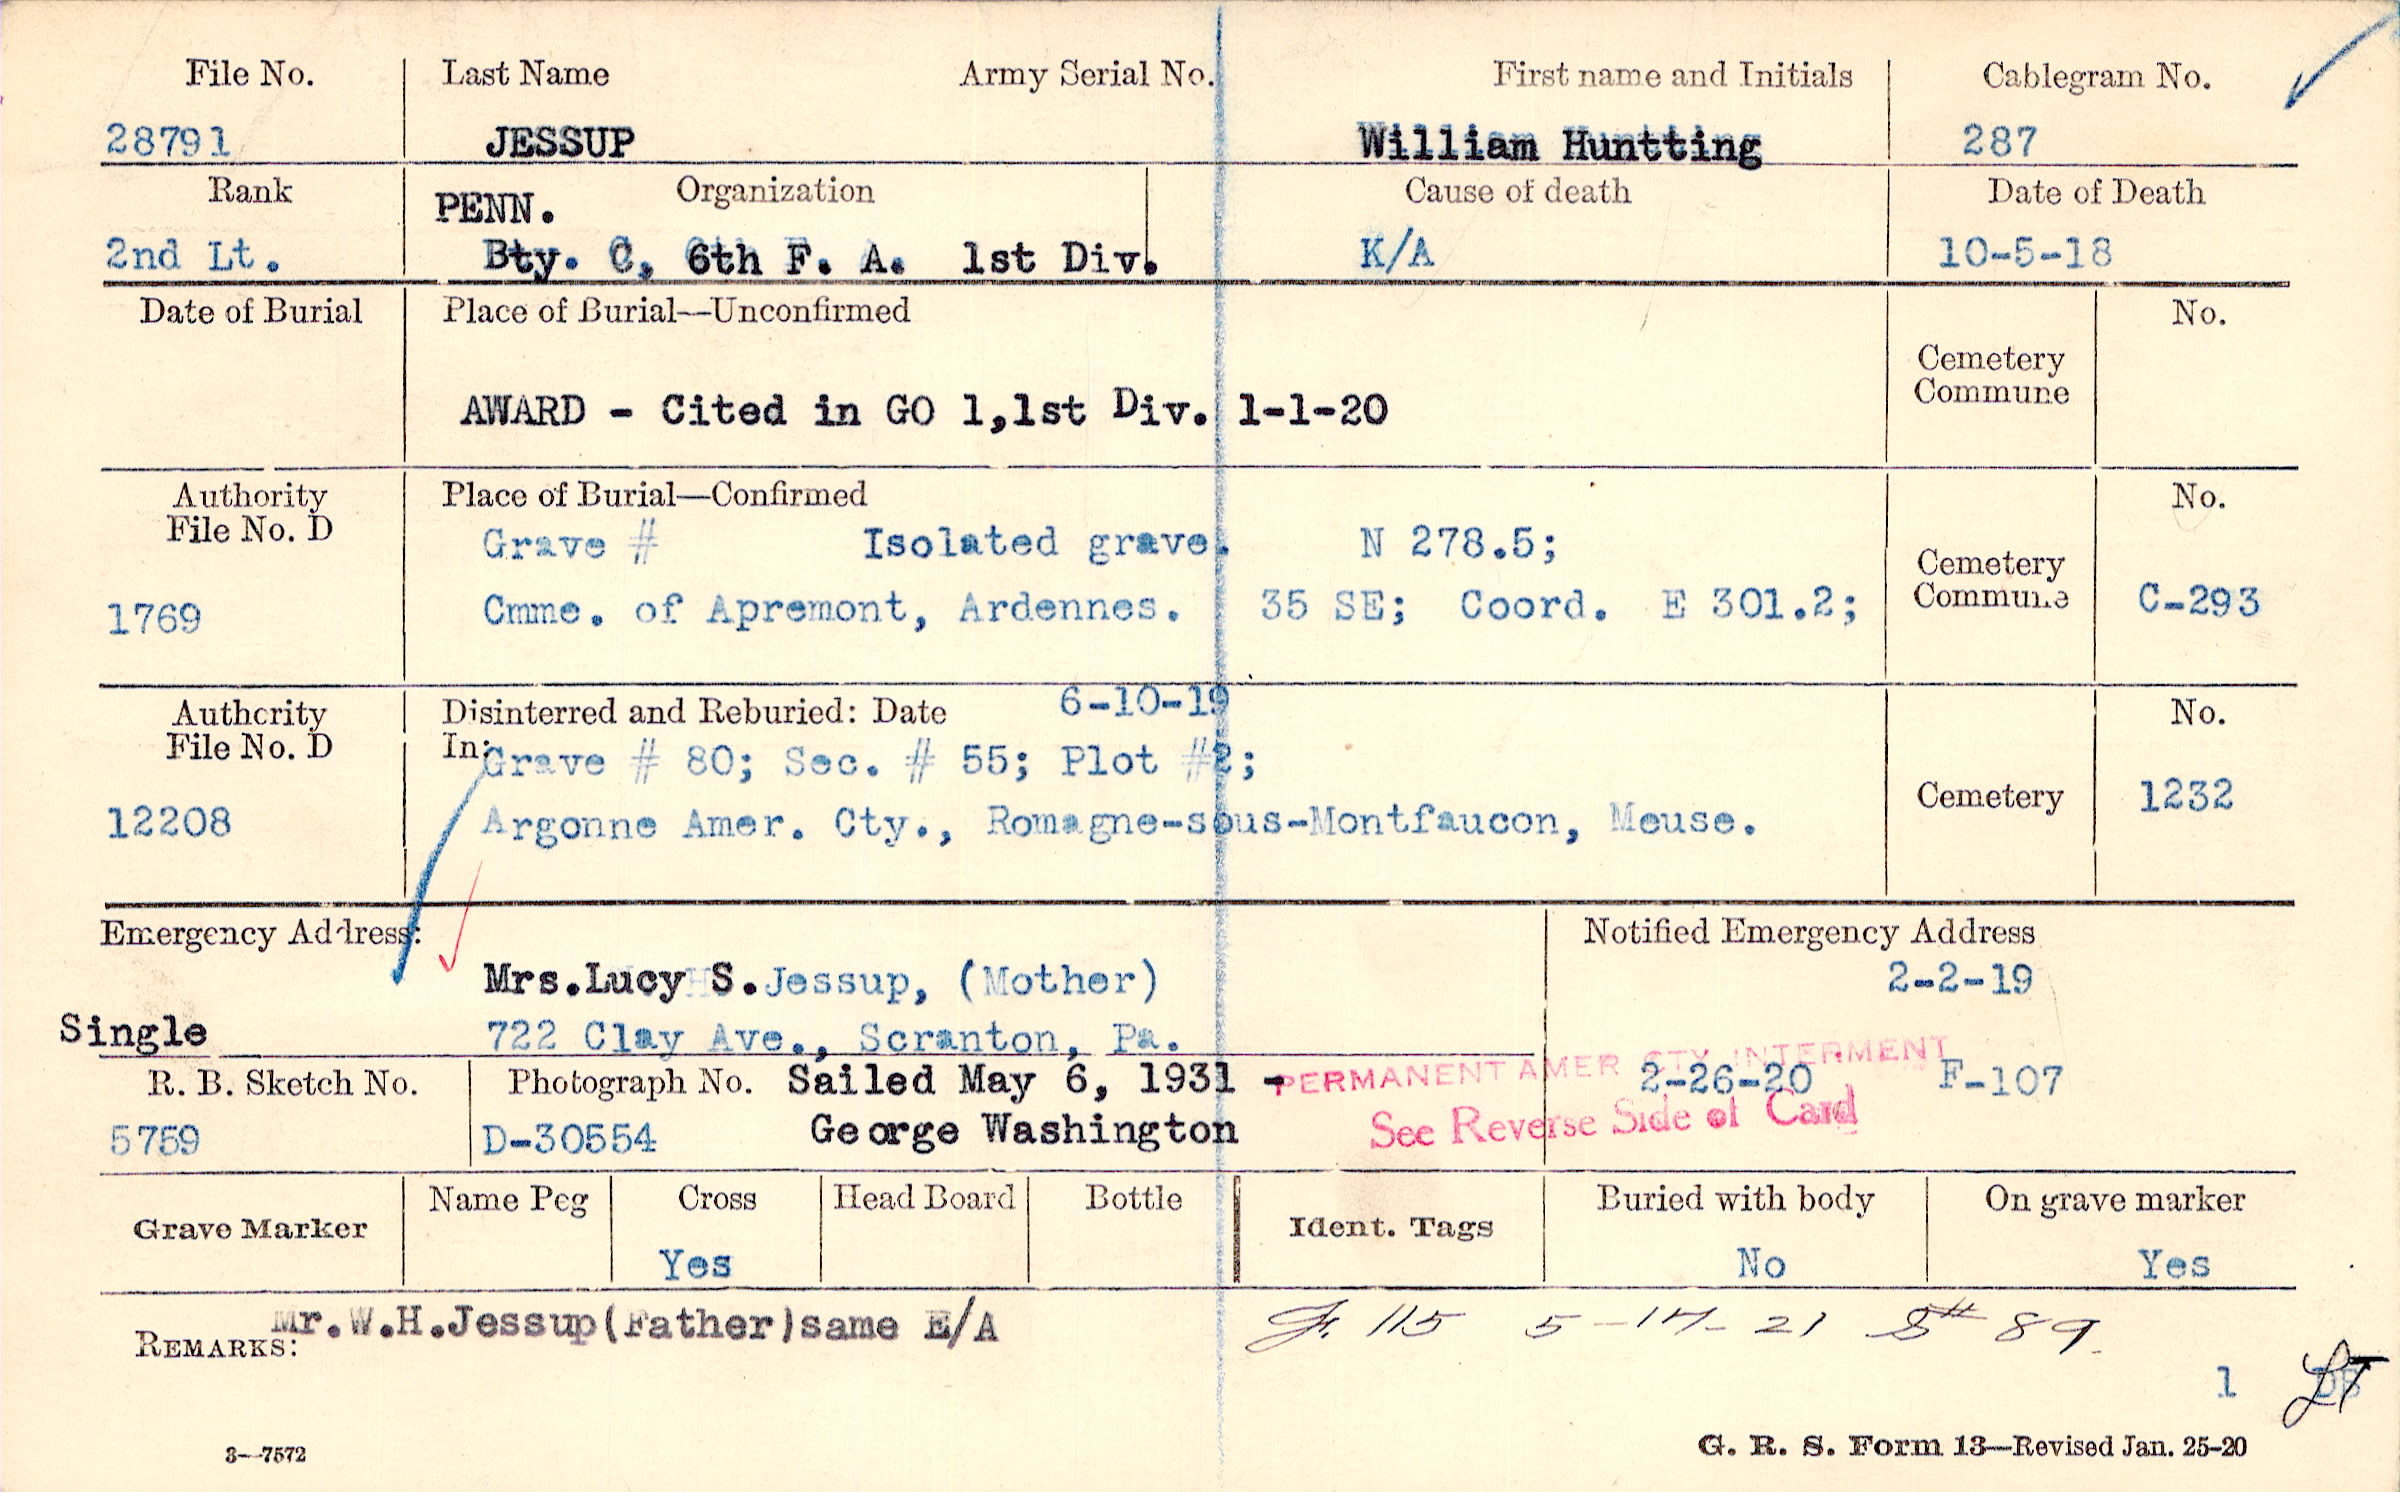 File No. Last Name Army Serial No. First name and Initials Cablegram No.
28791 JESSUP William Huntting 287
Rank PENN. Organization Cause of death Date of Death
2nd Lt. Bty. C, 6th F. A. 1st Div. K/A 10-5-18
Date of Burial Place of Burial—Unconfirmed No.
Cemetery
Commune
AWARD - Cited in GO 1,1st Div. 1-1-20
Authority Place of Burial—Confirmed No.
File No. D Grave # Isolated grave. N 278.5;
Cemetery
1769 Cmme. of Apremont, Ardennes. 35 SE; Coord. E 301.2; Commune C-293
Authority Disinterred and Reburied: Date 6-10-19 No.
File No. D In: Grave # 80; Sec. # 55; Plot #2;
12208 Argonne Amer. Cty., Romagne-sous-Montfaucon, Meuse. Cemetery 1232
Emergency Address: Notified Emergency Address
Mrs.Lucy S.Jessup, (Mother) 2-2-19
Single 722 Clay Ave., Scranton, Pa.
PERMANENT AMER CTY INTERMENT
R. B. Sketch No. Photograph No. Sailed May 6, 1931 - 2-26-20 F-107
See Reverse Side of Card
5759 D-30554 George Washington
Grave Marker Name Peg Cross Head Board Bottle Ident. Tags Buried with body On grave marker
Yes No Yes
Mr.W.H.Jessup(Father)same E/A 115 5-17-21 # 89
REMARKS:
1
3—7572 G. R. S. Form 13—Revised Jan. 25-20